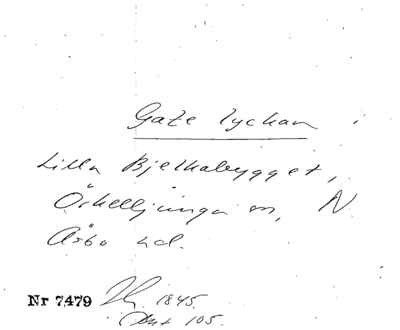 Gate lyckan
Lilla Bjelkabygget,
Örkelljunga sn, N
Åsbo hd.
Nr 7479 1845.
105.